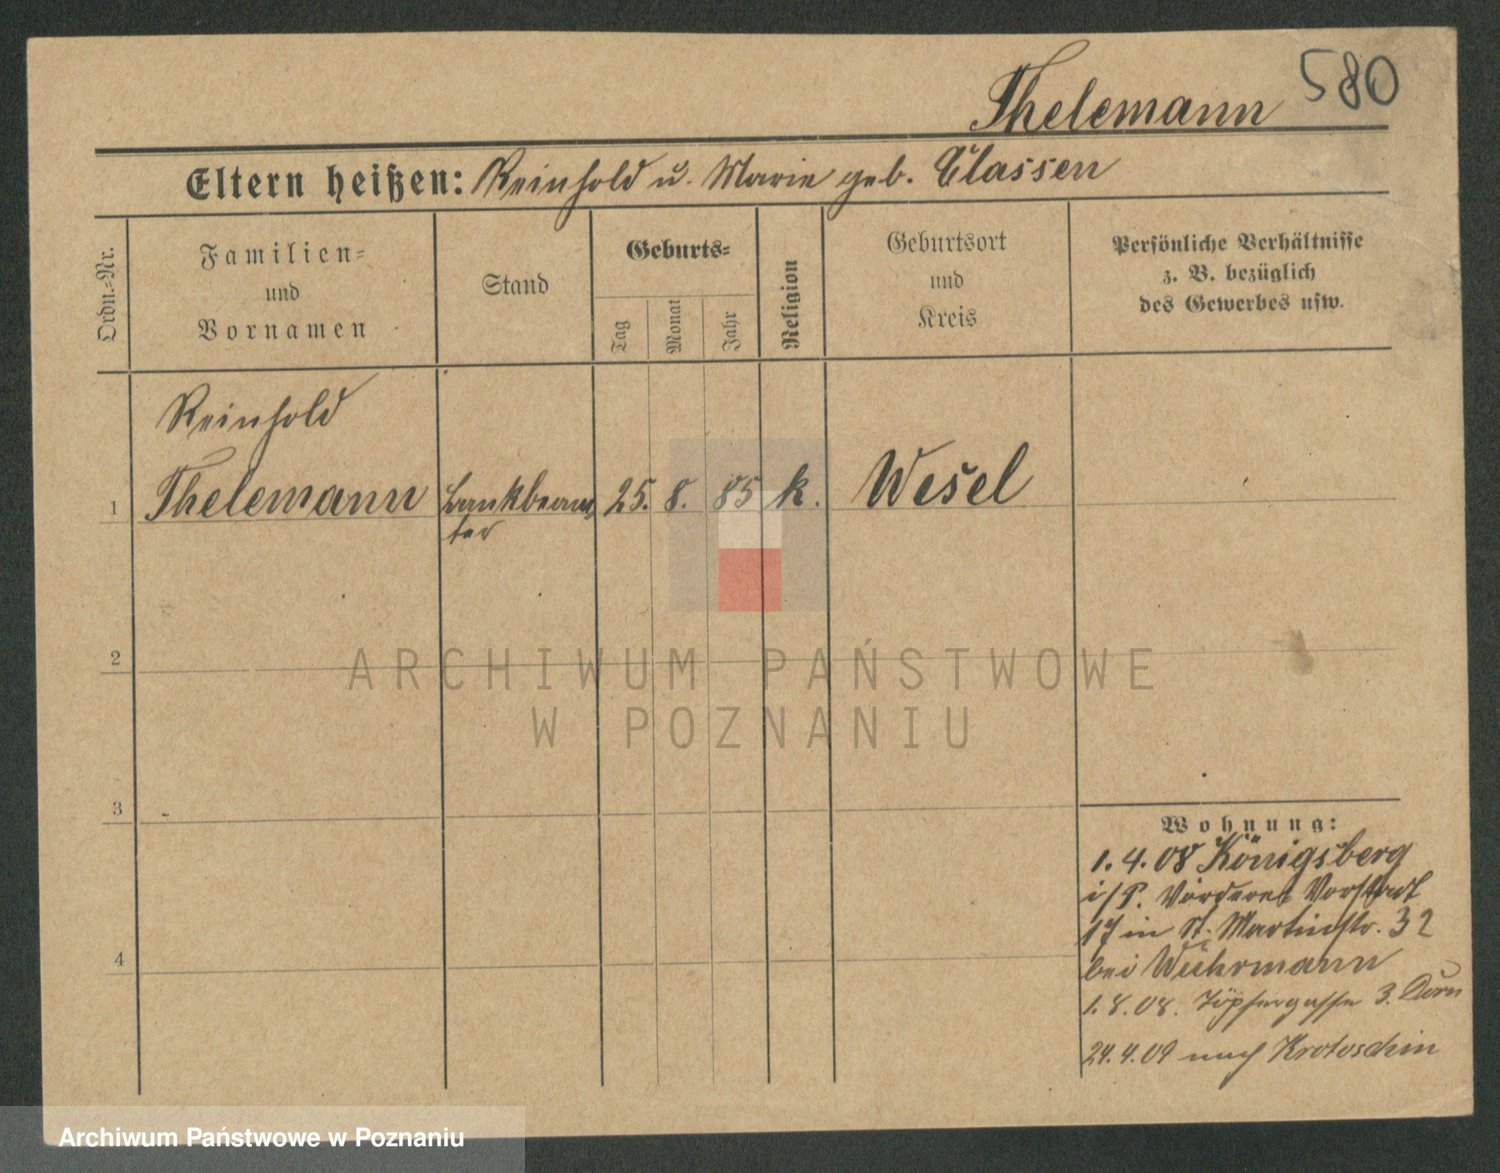 Thelemann 580
Eltern heißen: Reinhold u. Marie geb. Classen
Ordn.-Nr.
Familien-
und
Vornamen
Stand
Geburts-
Tag
Monat
Jahr
Religion
Geburtsort
und
Kreis
Persönliche Verhältnisse
z. B. bezüglich
des Gewerbes usw.
Reinhold
1 Thelemann Bankbeam- 25. 8. 85 k. Wesel
ter
2
3
4
Wohnung:
1. 4. 08 Königsberg
i/P. Vordere Vorstadt
17 in St. Martinstr. 32
bei Wuhrmann
1. 8. 08. Töpfergasse 3. Dorn
24. 4. 09 nach Krotoschin
ARCHIWUM PAŃSTWOWE
W POZNANIU
Archiwum Państwowe w Poznaniu